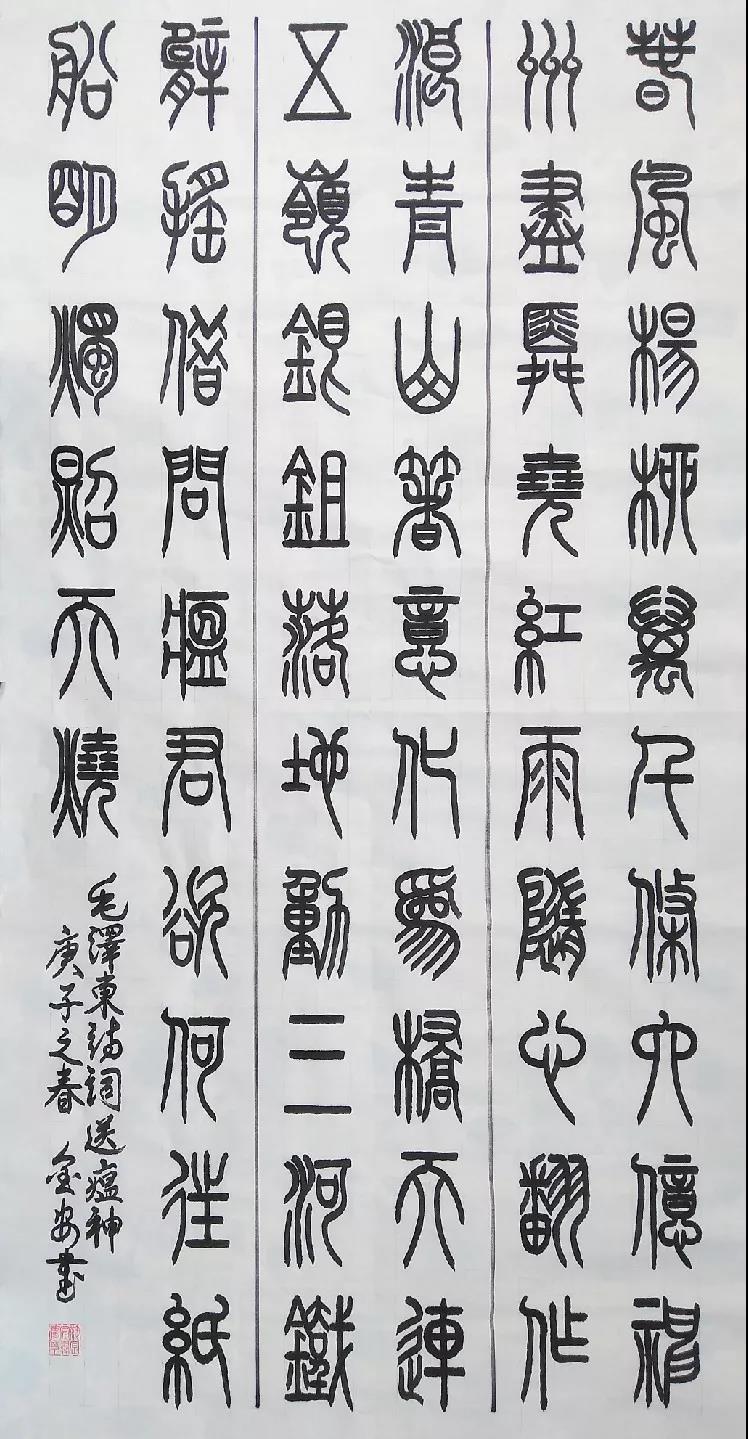 春風楊柳萬千條六億神
州盡舜堯紅雨隨心翻作
浪青山箸意化為橋天連
五嶺銀鉏落地動三河鐵
臂搖借問瘟君欲何往紙
船明燭照天燒
毛澤東詩詞送瘟神
庚子之春 金安書